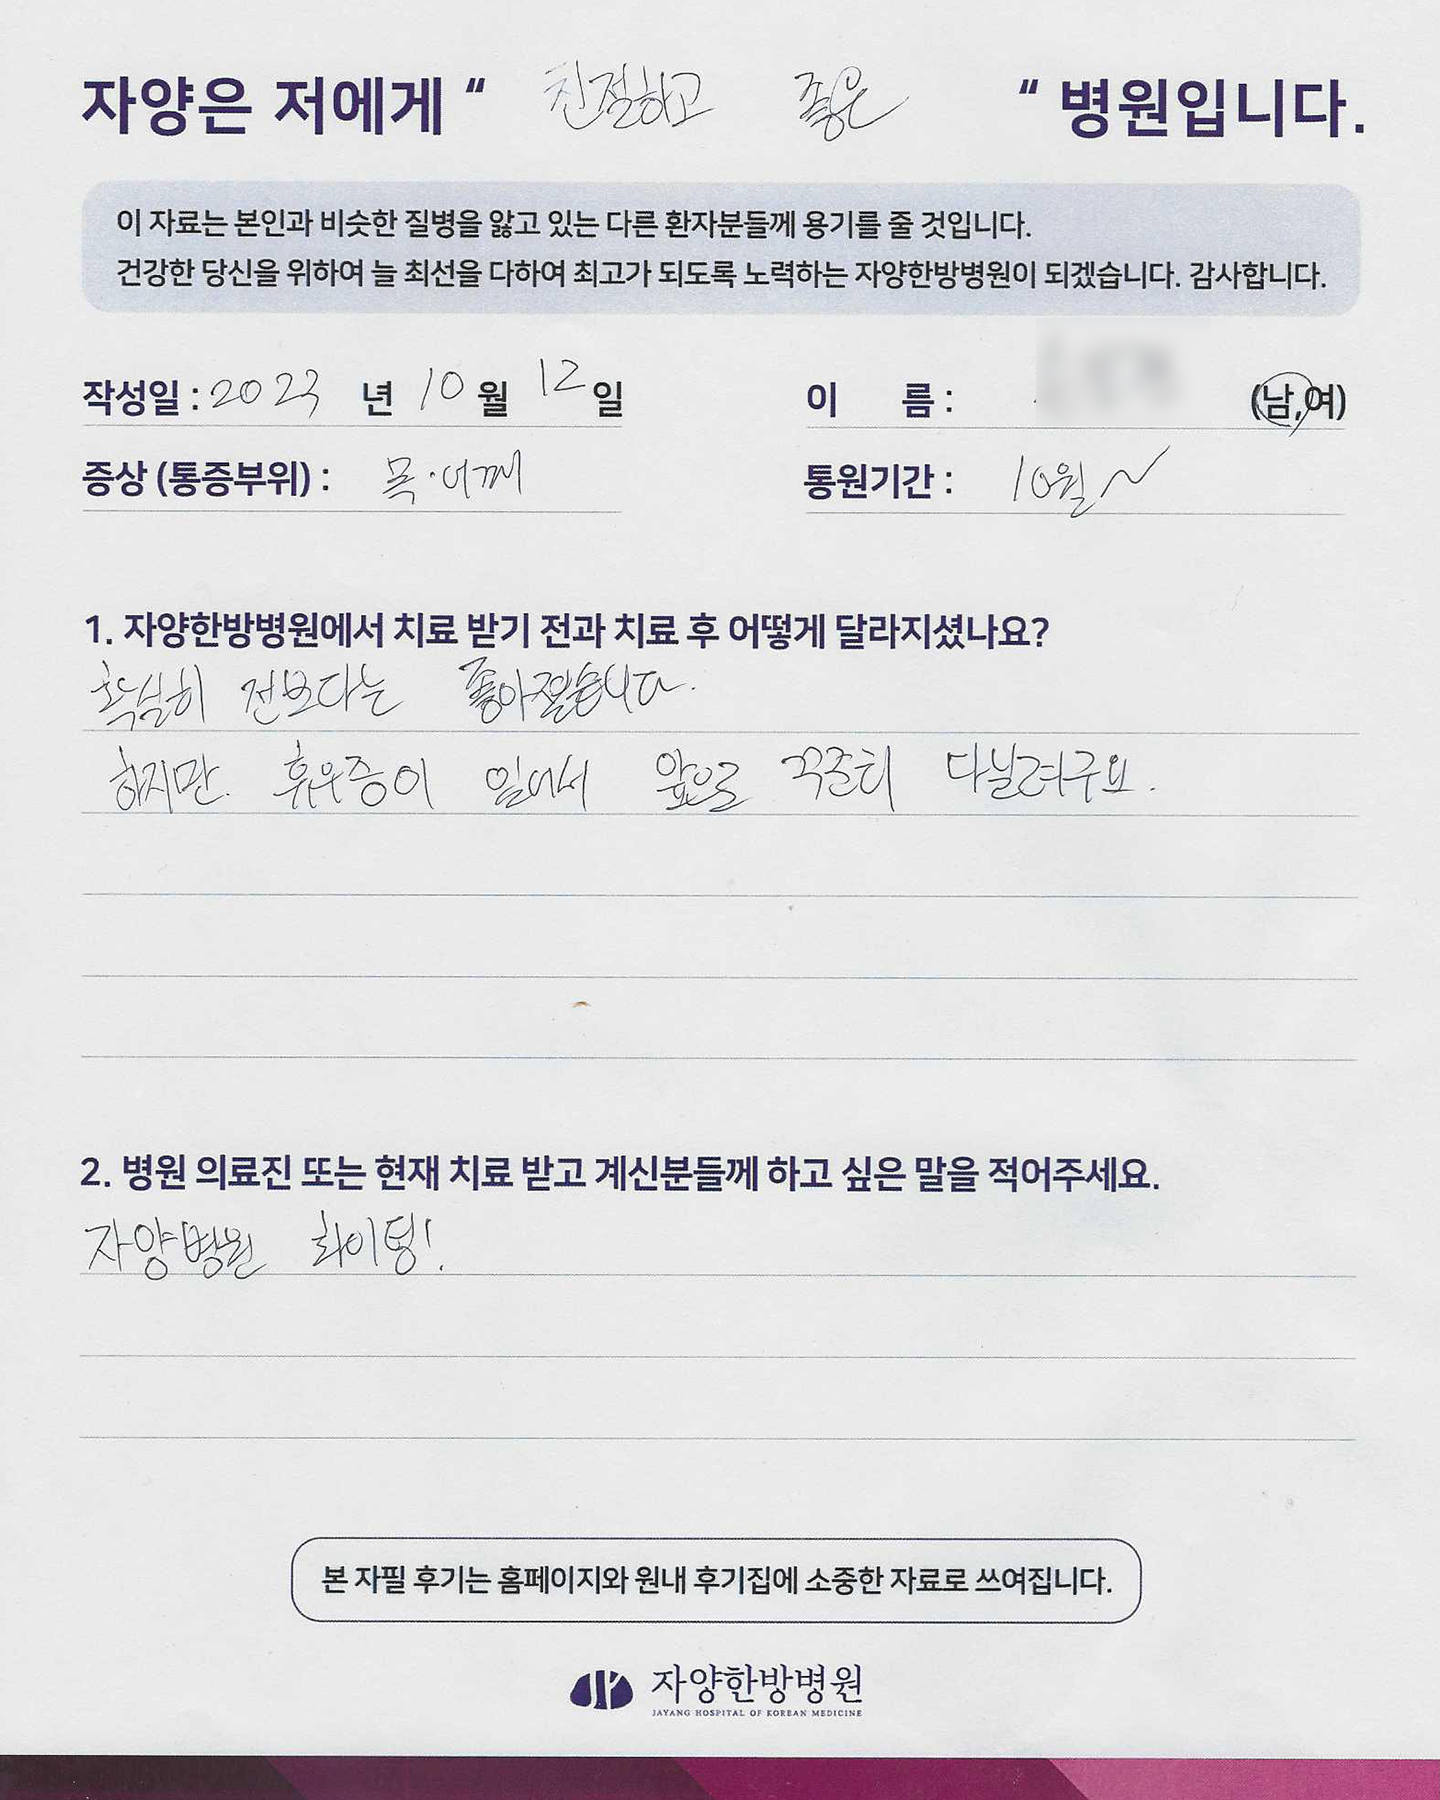 자양은 저에게 " 친절하고 좋은 " 병원입니다.
이 자료는 본인과 비슷한 질병을 앓고 있는 다른 환자분들께 용기를 줄 것입니다.
건강한 당신을 위하여 늘 최선을 다하여 최고가 되도록 노력하는 자양한방병원이 되겠습니다. 감사합니다.
작성일 : 2023 년 10 월 12 일 이 름 : (남,여)
증상 (통증부위) : 목·어깨 통원기간 : 10월 ~
1. 자양한방병원에서 치료 받기 전과 치료 후 어떻게 달라지셨나요?
확실히 전보다는 좋아졌습니다.
하지만 휴우증이 있어서 앞으로 꾸준히 다닐려구요.
2. 병원 의료진 또는 현재 치료 받고 계신분들께 하고 싶은 말을 적어주세요.
자양병원 화이팅!
본 자필 후기는 홈페이지와 원내 후기집에 소중한 자료로 쓰여집니다.
자양한방병원
JAYANG HOSPITAL OF KOREAN MEDICINE